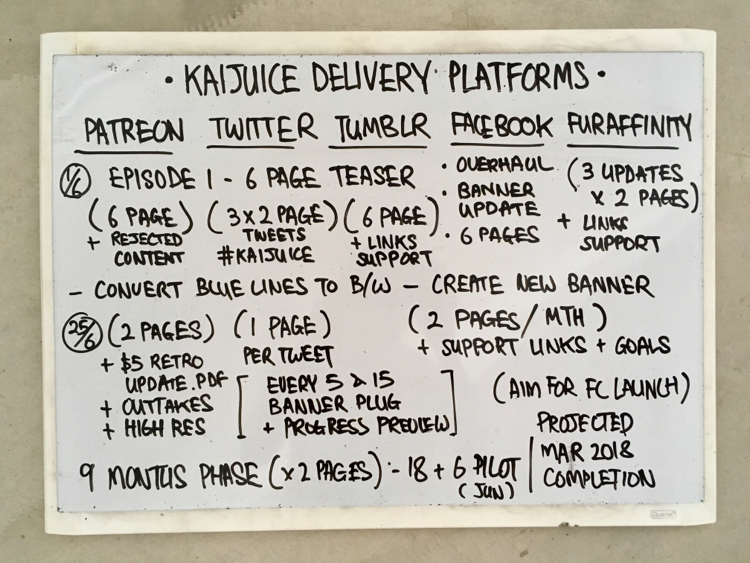 · KAIJUICE DELIVERY PLATFORMS ·
PATREON TWITTER TUMBLR FACEBOOK FURAFFINITY
1/6 EPISODE 1 - 6 PAGE TEASER
(6 PAGE)
+ REJECTED
CONTENT
(3 x 2 PAGE)
TWEETS
#KAIJUICE
(6 PAGE)
+ LINKS
SUPPORT
· OVERHAUL
· BANNER
UPDATE
· 6 PAGES
(3 UPDATES
x 2 PAGES)
+ LINKS
SUPPORT
- CONVERT BLUE LINES TO B/W - CREATE NEW BANNER
25/6 (2 PAGES)
+ $5 RETRO
UPDATE.PDF
+ OUTTAKES
+ HIGH RES
(1 PAGE)
PER TWEET
[EVERY 5 & 15
BANNER PLUG
+ PROGRESS PREVIEW]
(2 PAGES/MTH)
+ SUPPORT LINKS + GOALS
(AIM FOR FC LAUNCH)
PROJECTED
MAR 2018
COMPLETION
9 MONTHS PHASE (x 2 PAGES) - 18 + 6 PILOT
(JUN)